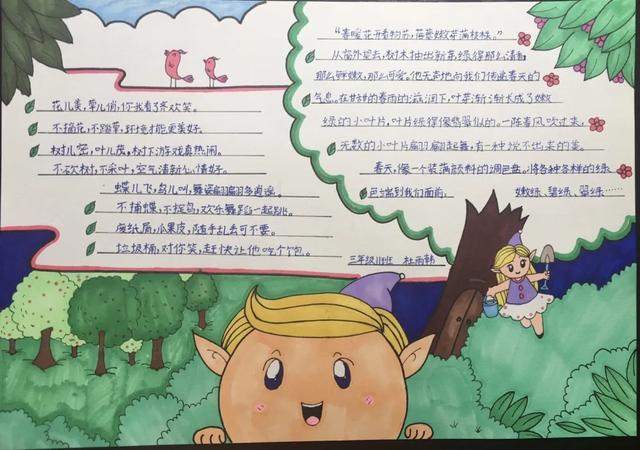 花儿美，草儿俏，你我看了齐欢笑。
不摘花，不踏草，环境才能更美好。
树儿密，叶儿茂，树下游戏真热闹。
不砍树，不采叶，空气清新心情好。
蝶儿飞，鸟儿叫，舞姿翩翩多逍遥。
不捕蝶，不捉鸟，欢乐舞蹈一起跳。
废纸屑，瓜果皮，随手乱丢可不要。
垃圾桶，对你笑，赶快让他吃个饱。
三年级11班 杜雨韩
“春暖花开看物苏，蓓蕾嫩芽满枝枝。”
从窗外望去，树木抽出新芽绿得那么清新
那么鲜嫩，那么可爱。他无声地向我们传递春天的
气息。在甘甜的春雨的滋润下，叶芽渐渐长成了嫩
绿的小叶片，叶片绿得像翡翠似的。一阵春风吹过来，
无数的小叶片翩翩起舞，有一种说不出来的美。
春天，像一个装满颜料的调色盘，将各种各样的绿
色端到我们面前， 嫩绿、碧绿、翠绿……